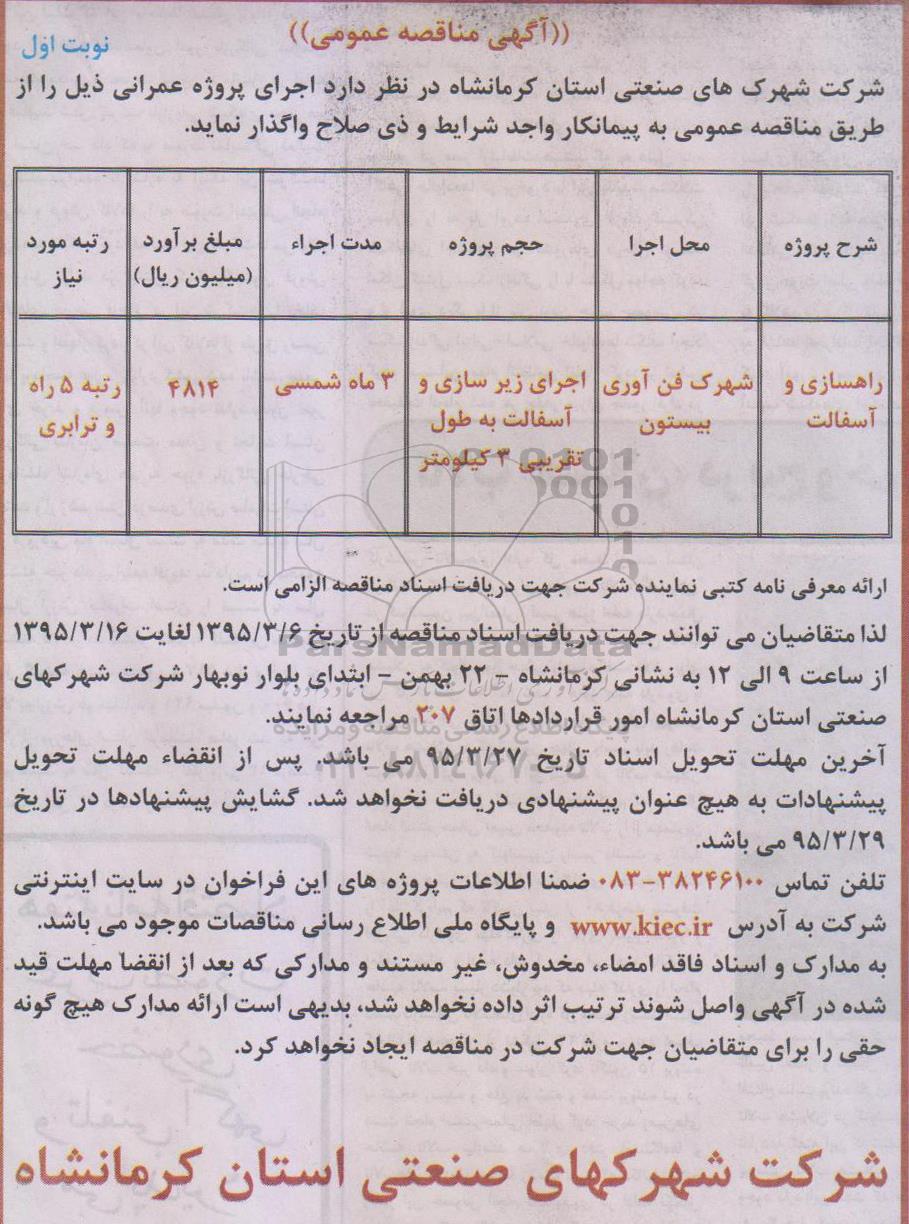 ((آگهی مناقصه عمومی))
نوبت اول
شرکت شهرک های صنعتی استان کرمانشاه در نظر دارد اجرای پروژه عمرانی ذیل را از
طریق مناقصه عمومی به پیمانکار واجد شرایط و ذی صلاح واگذار نماید.
شرح پروژه | محل اجرا | حجم پروژه | مدت اجراء | مبلغ برآورد (میلیون ریال) | رتبه مورد نیاز
راهسازی و آسفالت | شهرک فن آوری بیستون | اجرای زیر سازی و آسفالت به طول تقریبی ۳ کیلومتر | ۳ ماه شمسی | ۴۸۱۴ | رتبه ۵ راه و ترابری
ارائه معرفی نامه کتبی نماینده شرکت جهت دریافت اسناد مناقصه الزامی است.
لذا متقاضیان می توانند جهت دریافت اسناد مناقصه از تاریخ ۱۳۹۵/۳/۶ لغایت ۱۳۹۵/۳/۱۶
از ساعت ۹ الی ۱۲ به نشانی کرمانشاه - ۲۲ بهمن - ابتدای بلوار نوبهار شرکت شهرکهای
صنعتی استان کرمانشاه امور قراردادها اتاق ۲۰۷ مراجعه نمایند.
آخرین مهلت تحویل اسناد تاریخ ۹۵/۳/۲۷ می باشد. پس از انقضاء مهلت تحویل
پیشنهادات به هیچ عنوان پیشنهادی دریافت نخواهد شد. گشایش پیشنهادها در تاریخ
۹۵/۳/۲۹ می باشد.
تلفن تماس ۳۸۲۴۶۱۰۰-۰۸۳ ضمنا اطلاعات پروژه های این فراخوان در سایت اینترنتی
شرکت به آدرس www.kiec.ir و پایگاه ملی اطلاع رسانی مناقصات موجود می باشد.
به مدارک و اسناد فاقد امضاء، مخدوش، غیر مستند و مدارکی که بعد از انقضا مهلت قید
شده در آگهی واصل شوند ترتیب اثر داده نخواهد شد، بدیهی است ارائه مدارک هیچ گونه
حقی را برای متقاضیان جهت شرکت در مناقصه ایجاد نخواهد کرد.
شرکت شهرکهای صنعتی استان کرمانشاه
ParsNamadData